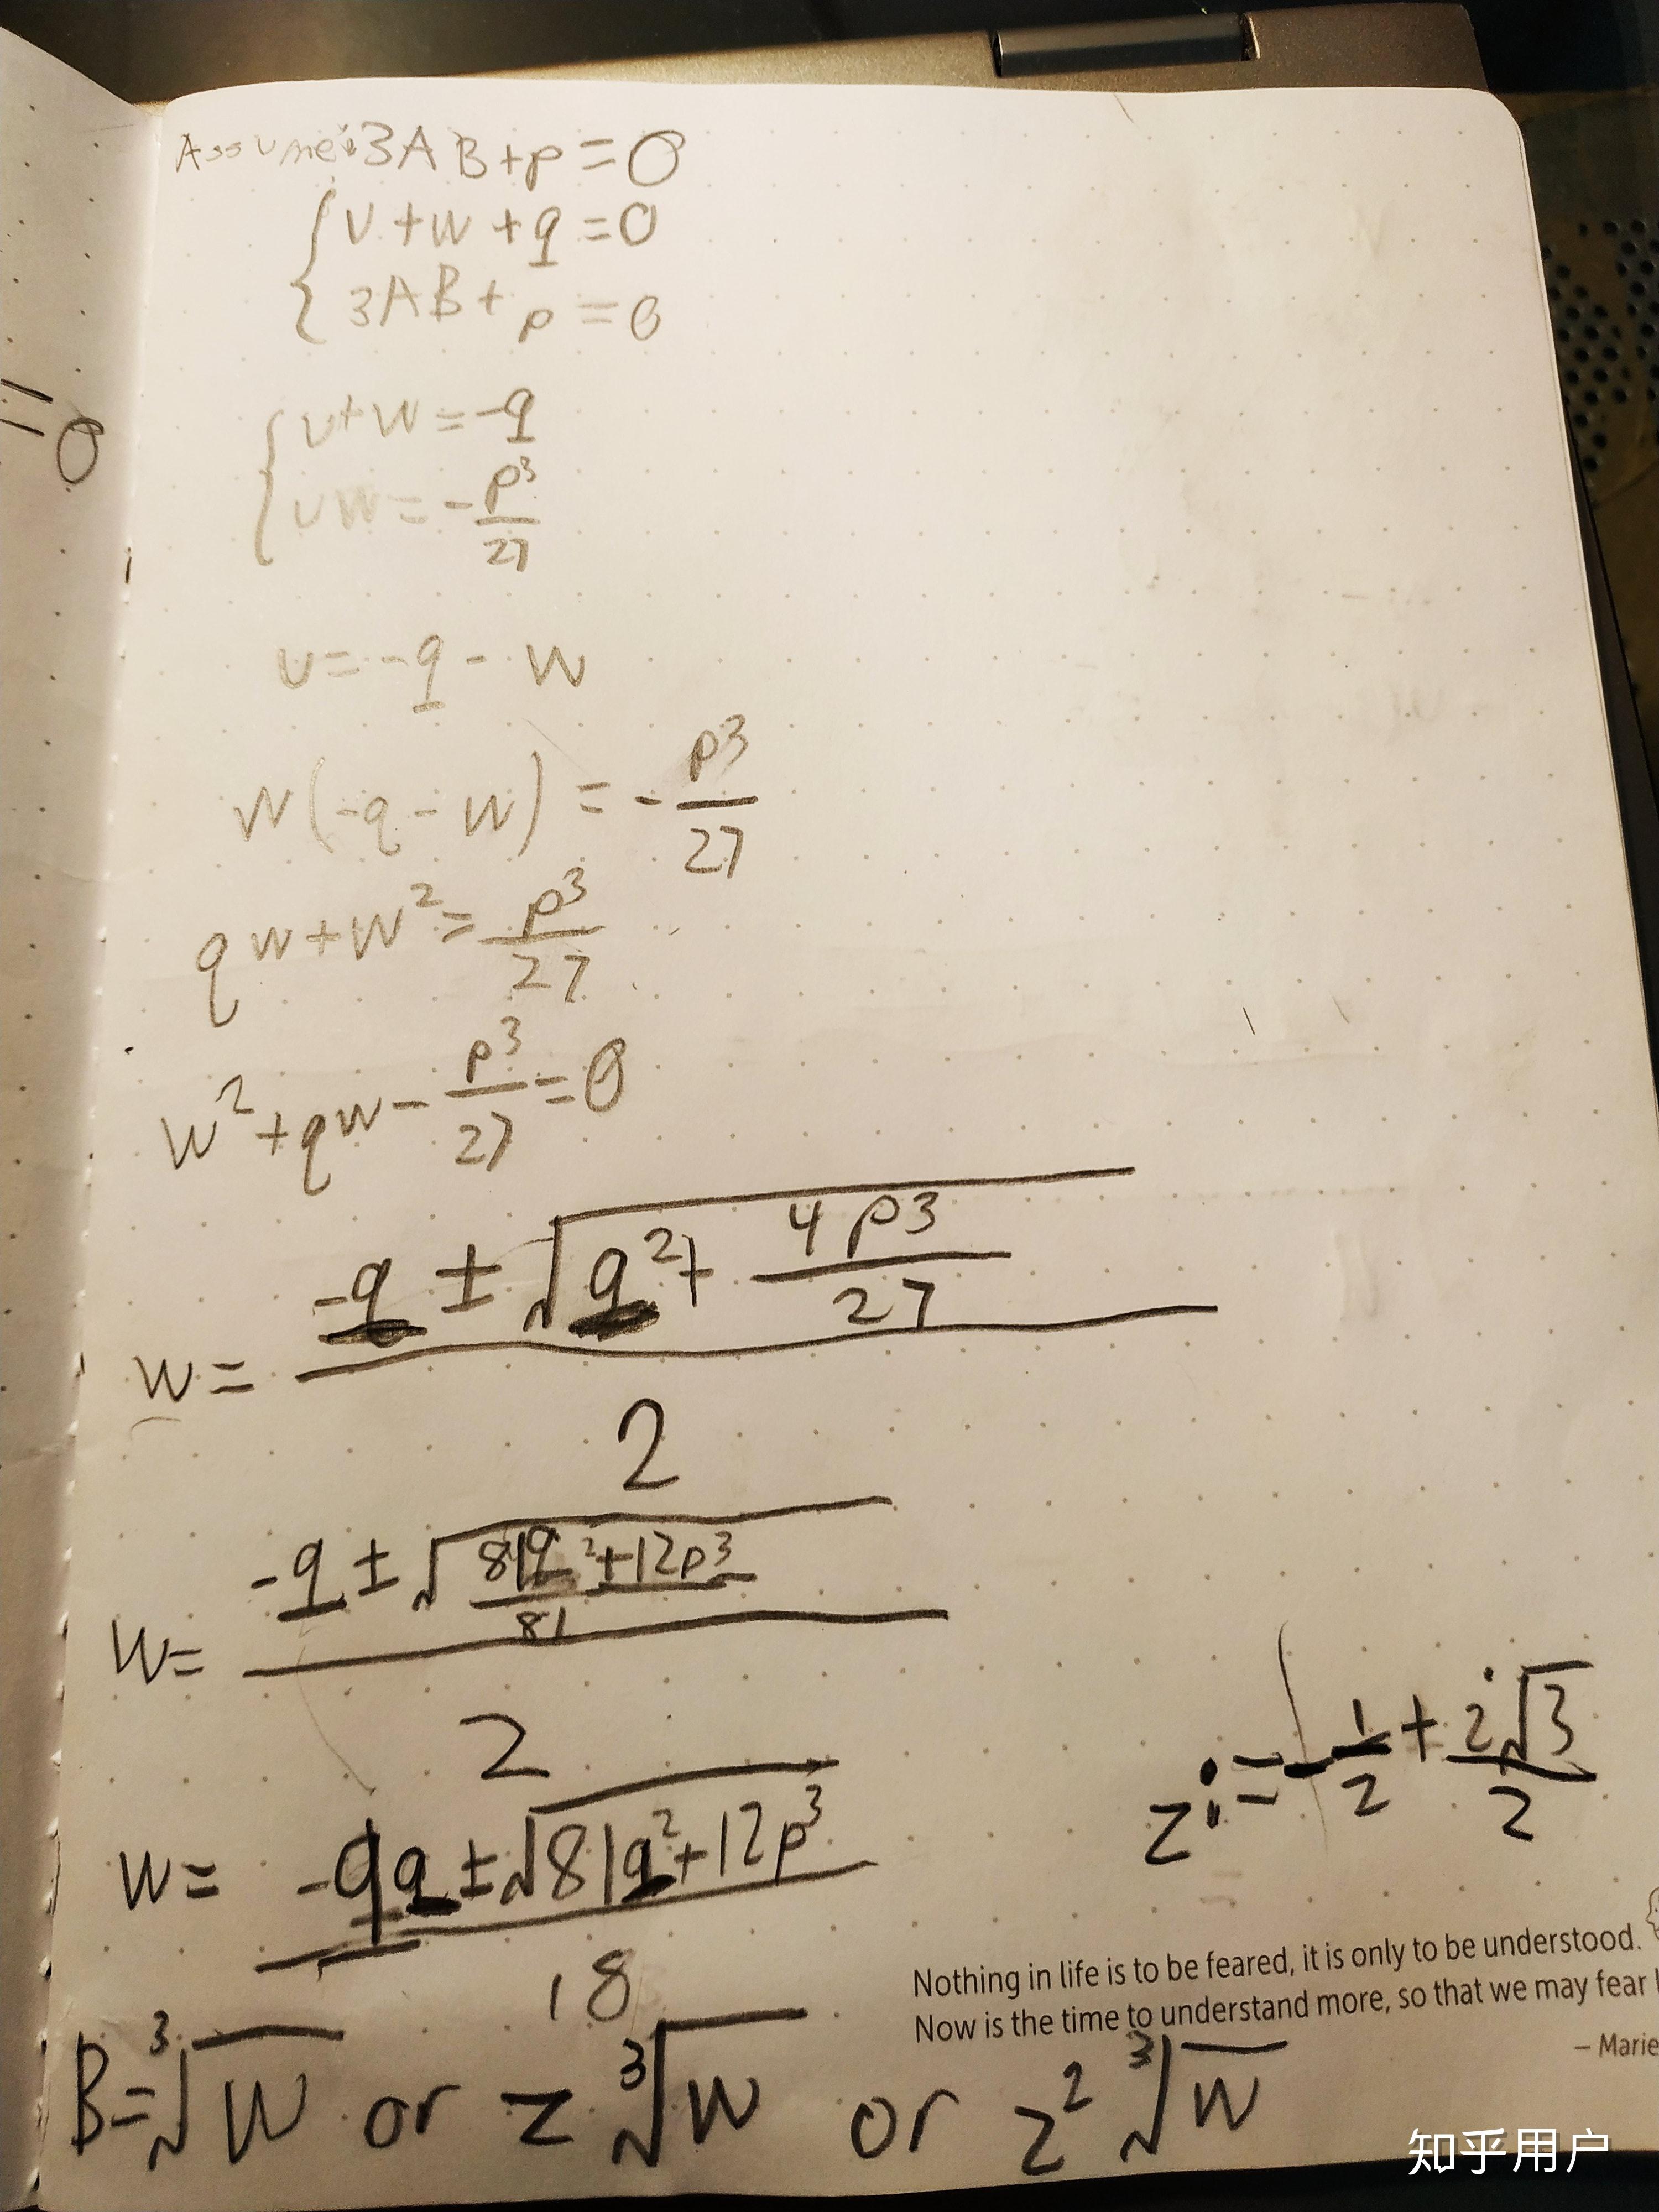 = 0
Assume: 3AB+p=0
{ v+w+q=0
3AB+p=0
{ v+w=-q
vw=-p³/27
v=-q-w
w(-q-w)=-p³/27
qw+w²=p³/27
w²+qw-p³/27=0
w=(-q±√(q²+4p³/27))/2
w=(-q±√((81q²+12p³)/81))/2
z:=-1/2+i√3/2
w=(-9q±√(81q²+12p³))/18
Nothing in life is to be feared, it is only to be understood.
Now is the time to understand more, so that we may fear
– Marie
B=³√w or z ³√w or z² ³√w
知乎用户